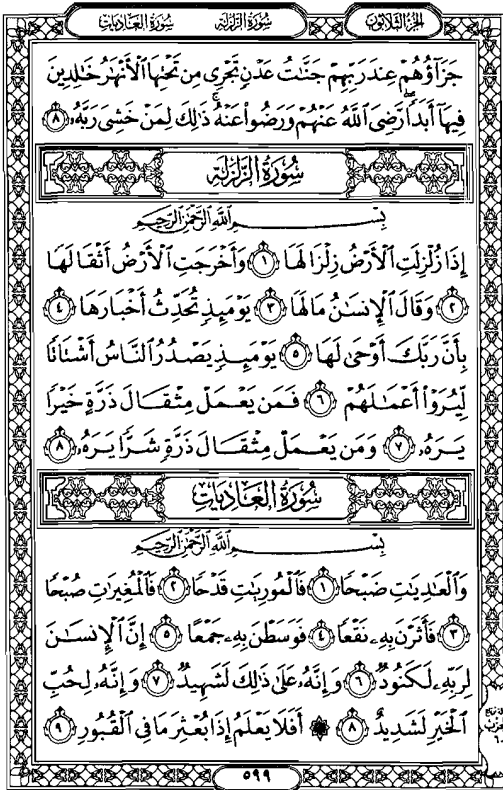 سُورَةُ العَادِيَات سُورَةُ الزَّلزَلَة الجُزءُ الثَّلَاثُونَ
جَزَآؤُهُمْ عِندَ رَبِّهِمْ جَنَّٰتُ عَدْنٍ تَجْرِى مِن تَحْتِهَا ٱلْأَنْهَٰرُ خَٰلِدِينَ
فِيهَآ أَبَدًا رَّضِىَ ٱللَّهُ عَنْهُمْ وَرَضُوا۟ عَنْهُ ذَٰلِكَ لِمَنْ خَشِىَ رَبَّهُۥ ٨
سُورَةُ الزَّلزَلَة
بِسْمِ ٱللَّهِ ٱلرَّحْمَٰنِ ٱلرَّحِيمِ
إِذَا زُلْزِلَتِ ٱلْأَرْضُ زِلْزَالَهَا ١ وَأَخْرَجَتِ ٱلْأَرْضُ أَثْقَالَهَا
٢ وَقَالَ ٱلْإِنسَٰنُ مَا لَهَا ٣ يَوْمَئِذٍ تُحَدِّثُ أَخْبَارَهَا ٤
بِأَنَّ رَبَّكَ أَوْحَىٰ لَهَا ٥ يَوْمَئِذٍ يَصْدُرُ ٱلنَّاسُ أَشْتَاتًا
لِّيُرَوْا۟ أَعْمَٰلَهُمْ ٦ فَمَن يَعْمَلْ مِثْقَالَ ذَرَّةٍ خَيْرًا
يَرَهُۥ ٧ وَمَن يَعْمَلْ مِثْقَالَ ذَرَّةٍ شَرًّا يَرَهُۥ ٨
سُورَةُ العَادِيَات
بِسْمِ ٱللَّهِ ٱلرَّحْمَٰنِ ٱلرَّحِيمِ
وَٱلْعَٰدِيَٰتِ ضَبْحًا ١ فَٱلْمُورِيَٰتِ قَدْحًا ٢ فَٱلْمُغِيرَٰتِ صُبْحًا
٣ فَأَثَرْنَ بِهِۦ نَقْعًا ٤ فَوَسَطْنَ بِهِۦ جَمْعًا ٥ إِنَّ ٱلْإِنسَٰنَ
لِرَبِّهِۦ لَكَنُودٌ ٦ وَإِنَّهُۥ عَلَىٰ ذَٰلِكَ لَشَهِيدٌ ٧ وَإِنَّهُۥ لِحُبِّ
ٱلْخَيْرِ لَشَدِيدٌ ٨ ۞ أَفَلَا يَعْلَمُ إِذَا بُعْثِرَ مَا فِى ٱلْقُبُورِ ٩
٥٩٩